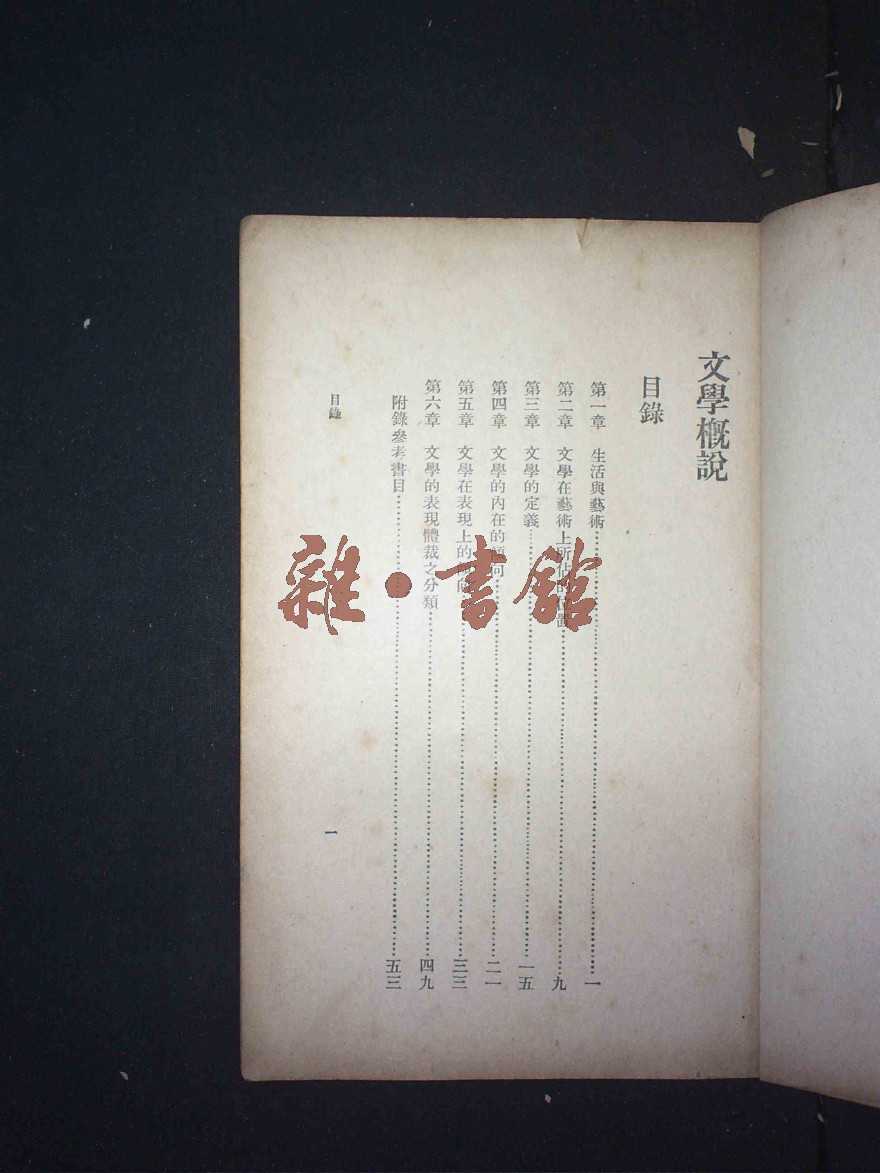 文學概說
目錄
第一章 生活與藝術⋯⋯一
第二章 文學在藝術上所佔的位置⋯⋯九
第三章 文學的定義⋯⋯一五
第四章 文學的內在的傾向⋯⋯二一
第五章 文學在表現上的傾向⋯⋯三三
第六章 文學的表現體裁之分類⋯⋯四九
附錄參考書目⋯⋯五三
目錄
一
雜·書館